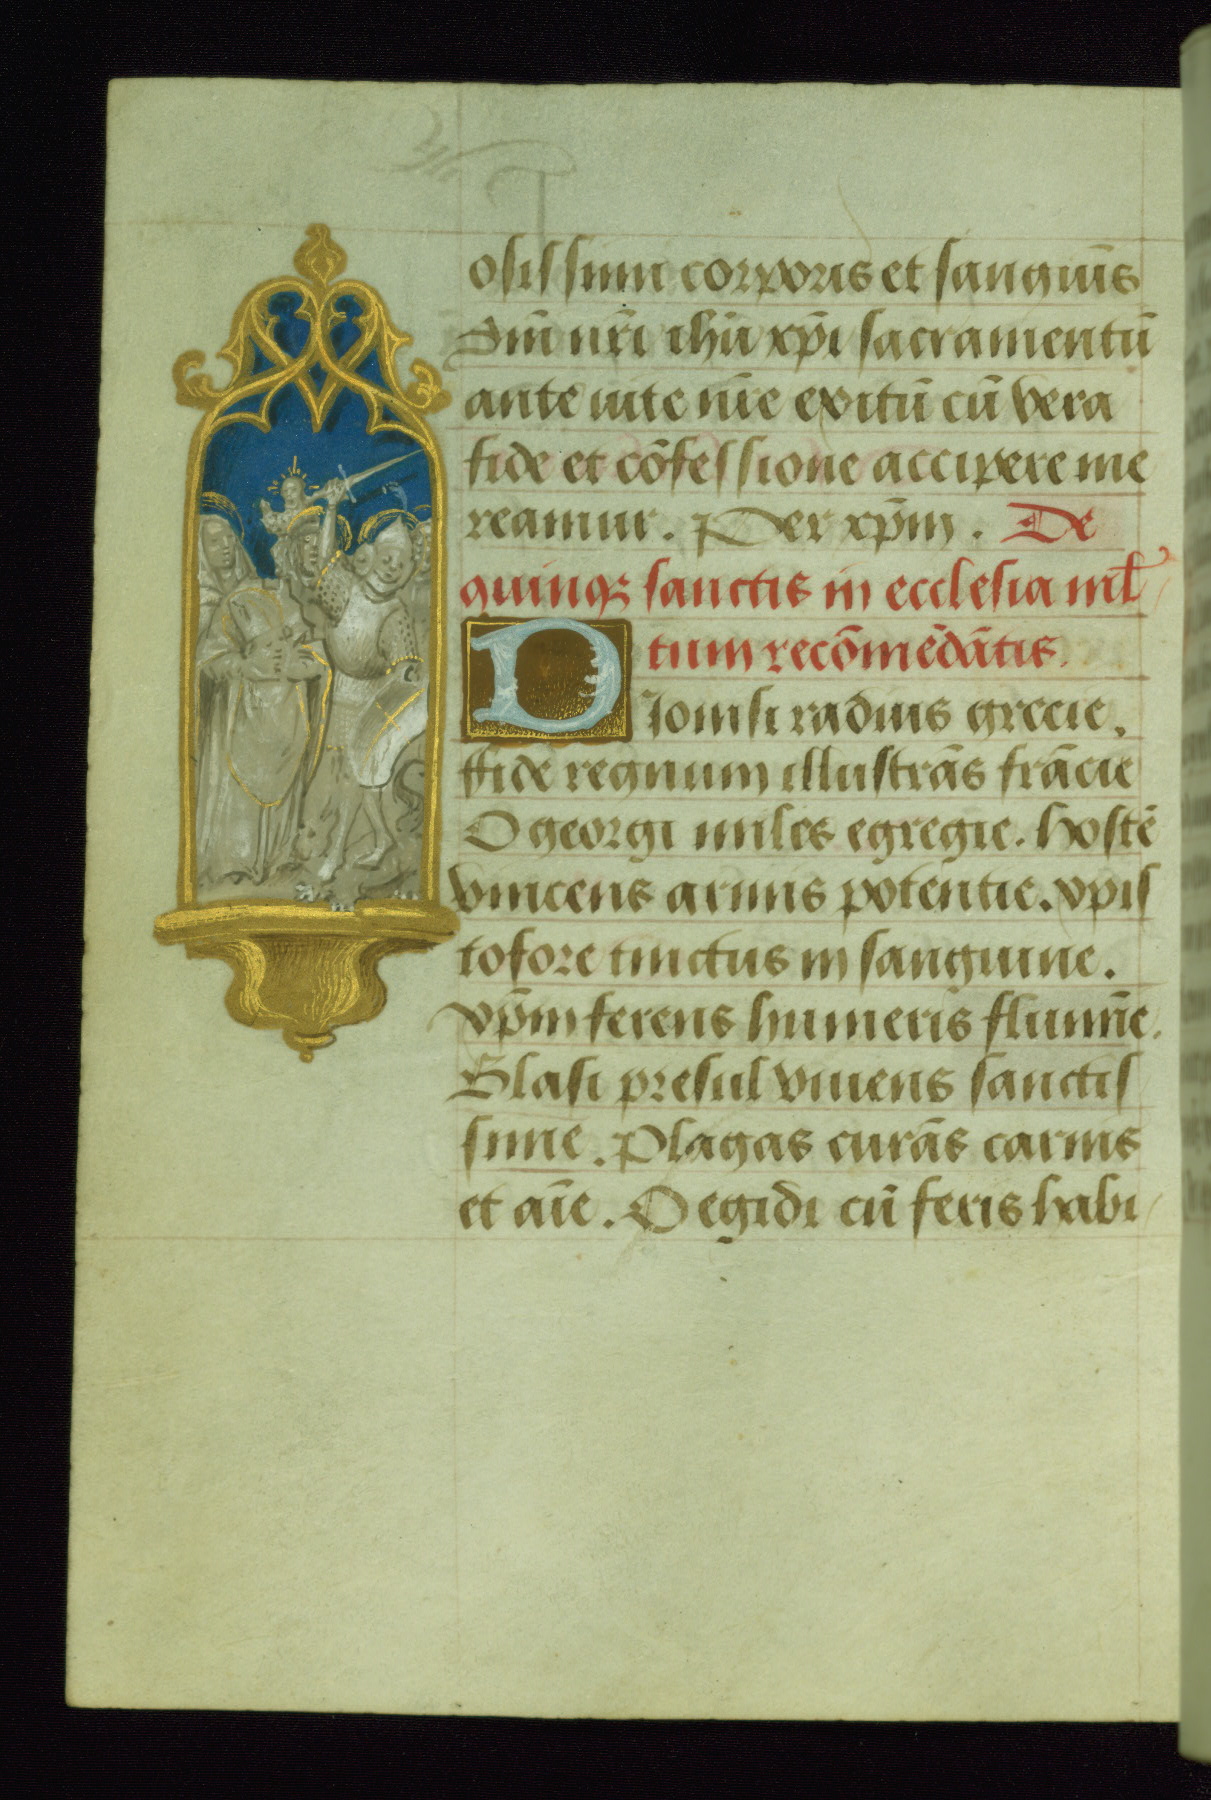 osissimi corporis et sanguīs
Dm̄i nr̄i ihū xp̄i sacramentū
ante uite nr̄e exitū cū vera
fide et cōfessione accipere me
reamur. Per xp̄m. De
quinqꝫ sanctis in ecclesia ml̄
tum recōmēdātis.
D Ionisi radius grecie.
ffide regnum illustrās frācie
O georgi miles egregie. hostē
vincens armis potentie. xpis
tofore tinctus in sanguine.
xp̄m ferens humeris flumīe.
Blasi presul viuens sanctis
sime. Plagas curās carnis
et aīe. O egidi cū feris habi